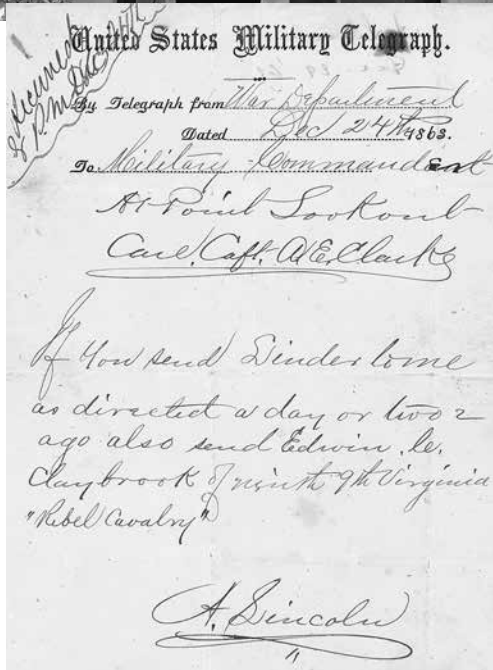 Received
8 P.M. Dec 24th
United States Military Telegraph.
By Telegraph from War Department
Dated Dec 24th 1863.
To Military Commandant
At Point Lookout
Care. Capt. A.E. Clark
If you send Linder to me
as directed a day or two 2
ago also send Edwin. C.
Claybrook of ninth 9th Virginia
"Rebel Cavalry"
A. Lincoln